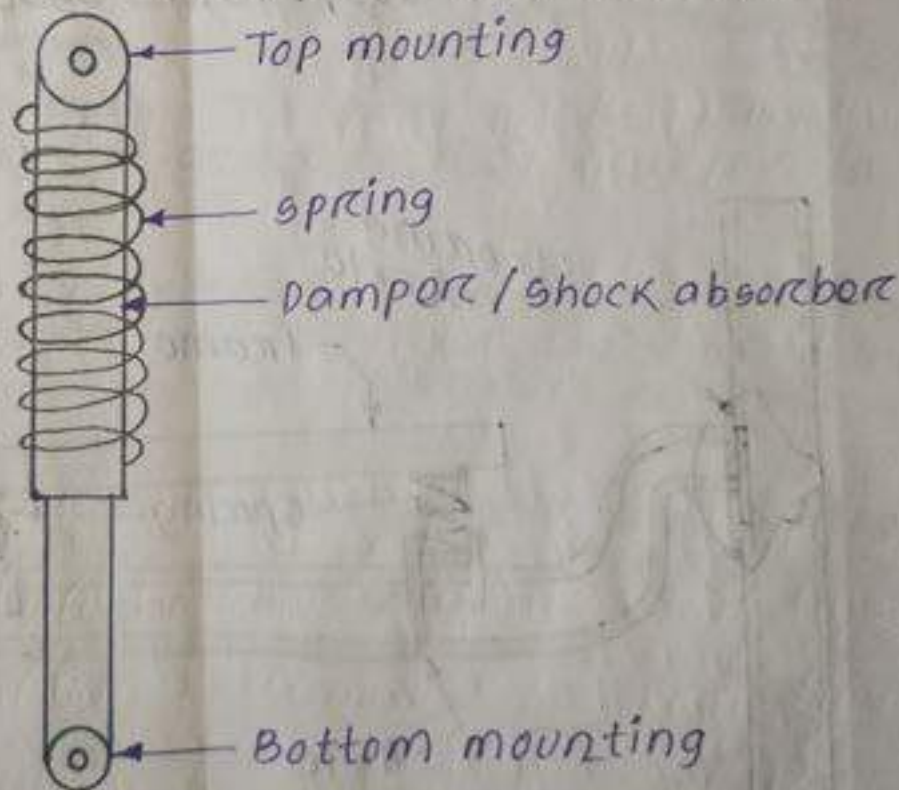 Top mounting
spring
Damper / shock absorber
Bottom mounting